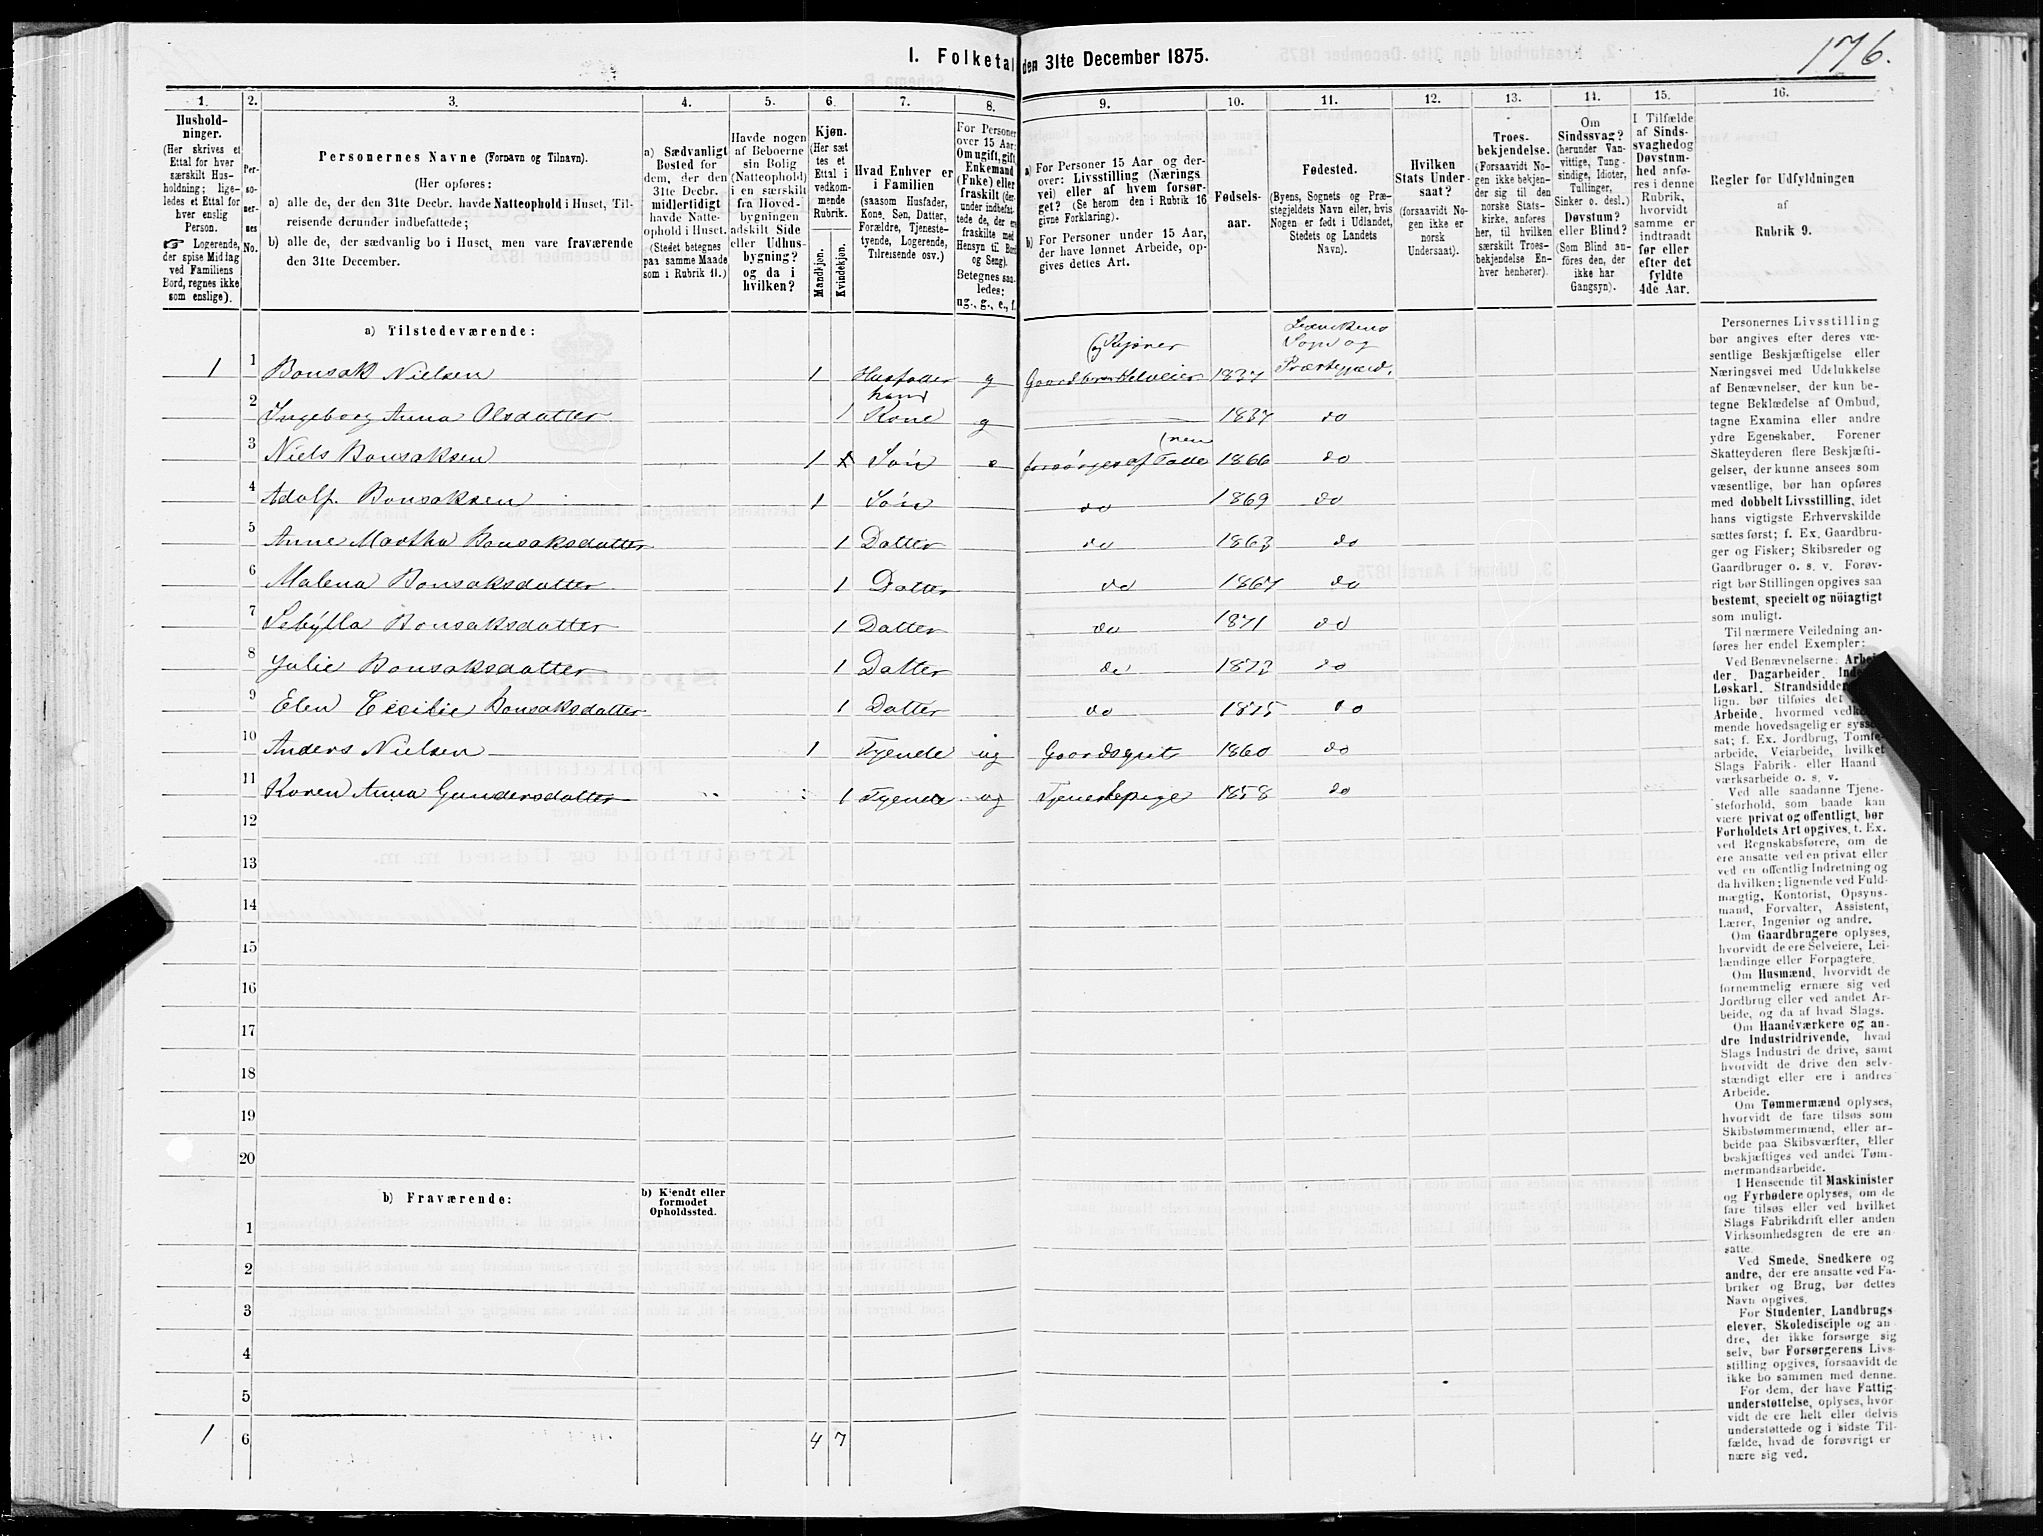 I. Folketal den 31te December 1875.
176.
1. 2. 3. 4. 5. 6. 7. 8. 9. 10. 11. 12. 13. 14. 15. 16.
Hushold-
ninger.
(Her skrives et
Ettal for hver
særskilt Hus-
holdning; lige-
ledes et Ettal for
hver enslig
Person.
☞ Logerende,
der spise Middag
ved Familiens
Bord, regnes ikke
som enslige).
Per-
so-
ner-
nes
No.
Personernes Navne (Fornavn og Tilnavn).
(Her opføres:
a) alle de, der den 31te Decbr. havde Natteophold i Huset, Til-
reisende derunder indbefattede;
b) alle de, der sædvanlig bo i Huset, men vare fraværende
den 31te December.
a) Sædvanligt
Bosted for
dem, der den
31te Decbr.
midlertidigt
havde Natte-
ophold i Huset.
(Stedet betegnes
paa samme Maade
som i Rubrik 11.)
Havde nogen
af Beboerne
sin Bolig
(Natteophold)
i en særskilt
fra Hoved-
bygningen
adskilt Side
eller Udhus-
bygning?
og da i
hvilken?
Kjøn.
(Her sæt
tes et
Ettal i
vedkom-
mende
Rubrik.
Mandkjøn.
Kvindekjøn.
Hvad Enhver er
i Familien
(saasom Husfader,
Kone, Søn, Datter,
Forældre, Tjeneste-
tyende, Logerende,
Tilreisende osv.)
For Personer
over 15 Aar:
Om ugift, gift,
Enkemand
(Enke) eller
fraskilt (der-
under indbefat-
tede de, der ere
fraskilte med
Hensyn til Bord
og Seng).
Betegnes saa-
ledes:
ug., g., e., f.
a) For Personer 15 Aar og der-
over: Livsstilling (Nærings
vei) eller af hvem forsør-
get? (Se herom den i Rubrik 16
givne Forklaring).
b) For Personer under 15 Aar,
der have lønnet Arbeide, op-
gives dettes Art.
Fødsels-
aar.
Fødested.
(Byens, Sognets og Præ-
stegjeldets Navn eller, hvis
Nogen er født i Udlandet,
Stedets og Landets
Navn).
Hvilken
Stats Under-
saat?
(forsaavidt No-
gen ikke er
norsk
Undersaat).
Troes-
bekjendelse.
(Forsaavidt No-
gen ikke bekjen-
der sig til den
norske Stats-
kirke, anføres
her, til hvilken
særskilt Troes-
bekjendelse En-
hver henhører).
Om
Sindssvag?
(herunder Van-
vittige, Tung-
sindige, Idioter,
Tullinger,
Sinker o. desl.)
Døvstum?
eller Blind?
(Som Blind an-
føres den, der
ikke har
Gangsyn).
I Tilfælde
af Sinds-
svaghed og
Døvstum-
hed anfø-
res i denne
Rubrik,
hvorvidt
samme er
indtraadt
før eller
efter det
fyldte
4de Aar.
Regler for Udfyldningen
af
Rubrik 9.
a) Tilstedeværende:
1 1 Bonsak Nielsen 1 Husfader g Gaardbruger Selveier (og Rejøner 1837 Sogn og Præstegjæld.
2 Ingeborg Anna Olsdatter 1 hans Kone g 1837 do
3 Niels Bonsaksen 1 Søn forsørges af Fade (ren 1866 do
4 Adolf. Bonsaksen 1 Søn do 1869 do
5 Anne Martha Bonsaksdatter 1 Datter do 1863 do
6 Malena Bonsaksdatter 1 Datter do 1867 do
7 Sebylla Bonsaksdatter 1 Datter do 1871 do
8 Julie Bonsaksdatter 1 Datter do 1873 do
9 Elen Cecilie Bonsaksdatter 1 Datter do 1875 do
10 Anders Nielsen 1 Tyende ug Gaardsgut 1860 do
11 Karen Anna Gundersdatter 1 Tyende ug Tjenestepige 1858 do
12
13
14
15
16
17
18
19
20
b) Fraværende:
b) Kjendt eller
formodet
Opholdssted.
1
2
3
4
5
1 6 4 7
Personernes Livsstilling
bør angives efter deres væ-
sentlige Beskjæftigelse eller
Næringsvei med Udelukkelse
af Benævnelser, der kun be-
tegne Beklædelse af Ombud,
tagne Examina eller andre
ydre Egenskaber. Forener
Skatteyderen flere Beskjæfti-
gelser, der kunne ansees som
væsentlige, bør han opføres
med dobbelt Livsstilling, idet
hans vigtigste Erhvervskilde
sættes først; f. Ex. Gaardbru-
ger og Fisker; Skibsreder og
Gaardbruger o. s. v. Forøv-
rigt bør Stillingen opgives saa
bestemt, specielt og nöiagtigt
som muligt.
Til nærmere Veiledning an-
føres her endel Exempler:
Ved Benævnelserne: Arbei-
der, Dagarbeider, Inder
Løskarl, Strandsidder
lign. bør tilføies det
Arbeide, hvormed vedkom-
mende hovedsagelig er syssel-
sat; f. Ex. Jordbrug, Tomte-
arbeide, Veiarbeide, hvilket
Slags Fabrik- eller Haand
værksarbeide o. s. v.
Ved alle saadanne Tjene-
steforhold, som baade kan
være privat og offentligt, bør
Forholdets Art opgives, t. Ex.
ved Regnskabsførere, om de
ere ansatte ved en privat eller
ved en offentlig Indretning og
da hvilken; lignende ved Fuld-
mægtig, Kontorist, Opsyns-
mand, Forvalter, Assistent,
Lærer, Ingeniør og andre.
Om Gaardbrugere oplyses,
hvorvidt de ere Selveiere, Lei-
lændinge eller Forpagtere.
Om Husmænd, hvorvidt de
fornemmelig ernære sig ved
Jordbrug eller ved andet Ar-
beide, og da af hvad Slags.
Om Haandværkere og an-
dre Industridrivende, hvad
Slags Industri de drive, samt
hvorvidt de drive den selv-
stændigt eller ere i andres
Arbeide.
Om Tømmermænd oplyses,
hvorvidt de fare tilsøs som
Skibstømmermænd, eller ar-
beide paa Skibsværfter, eller
beskjæftiges ved andet Tøm-
mermandsarbeide.
I Henseende til Maskinister
og Fyrbødere oplyses, om de
fare tilsøs eller ved hvilket
Slags Fabrikdrift eller anden
Virksomhedsgren de ere an-
satte.
Ved Smede, Snedkere og
andre, der ere ansatte ved Fa-
briker og Brug, bør dettes
Navn opgives.
For Studenter, Landbrugs
elever, Skoledisciple og an-
dre, der ikke forsørge sig
selv, bør Forsørgerens Livs-
stilling opgives, forsaavidt de
ikke bo sammen med denne.
For dem, der have Fattig-
understøttelse, oplyses, hvor-
vidt de ere helt eller delvis
understøttede og i sidste Til-
fælde, hvad de forøvrigt er
nære sig ved.